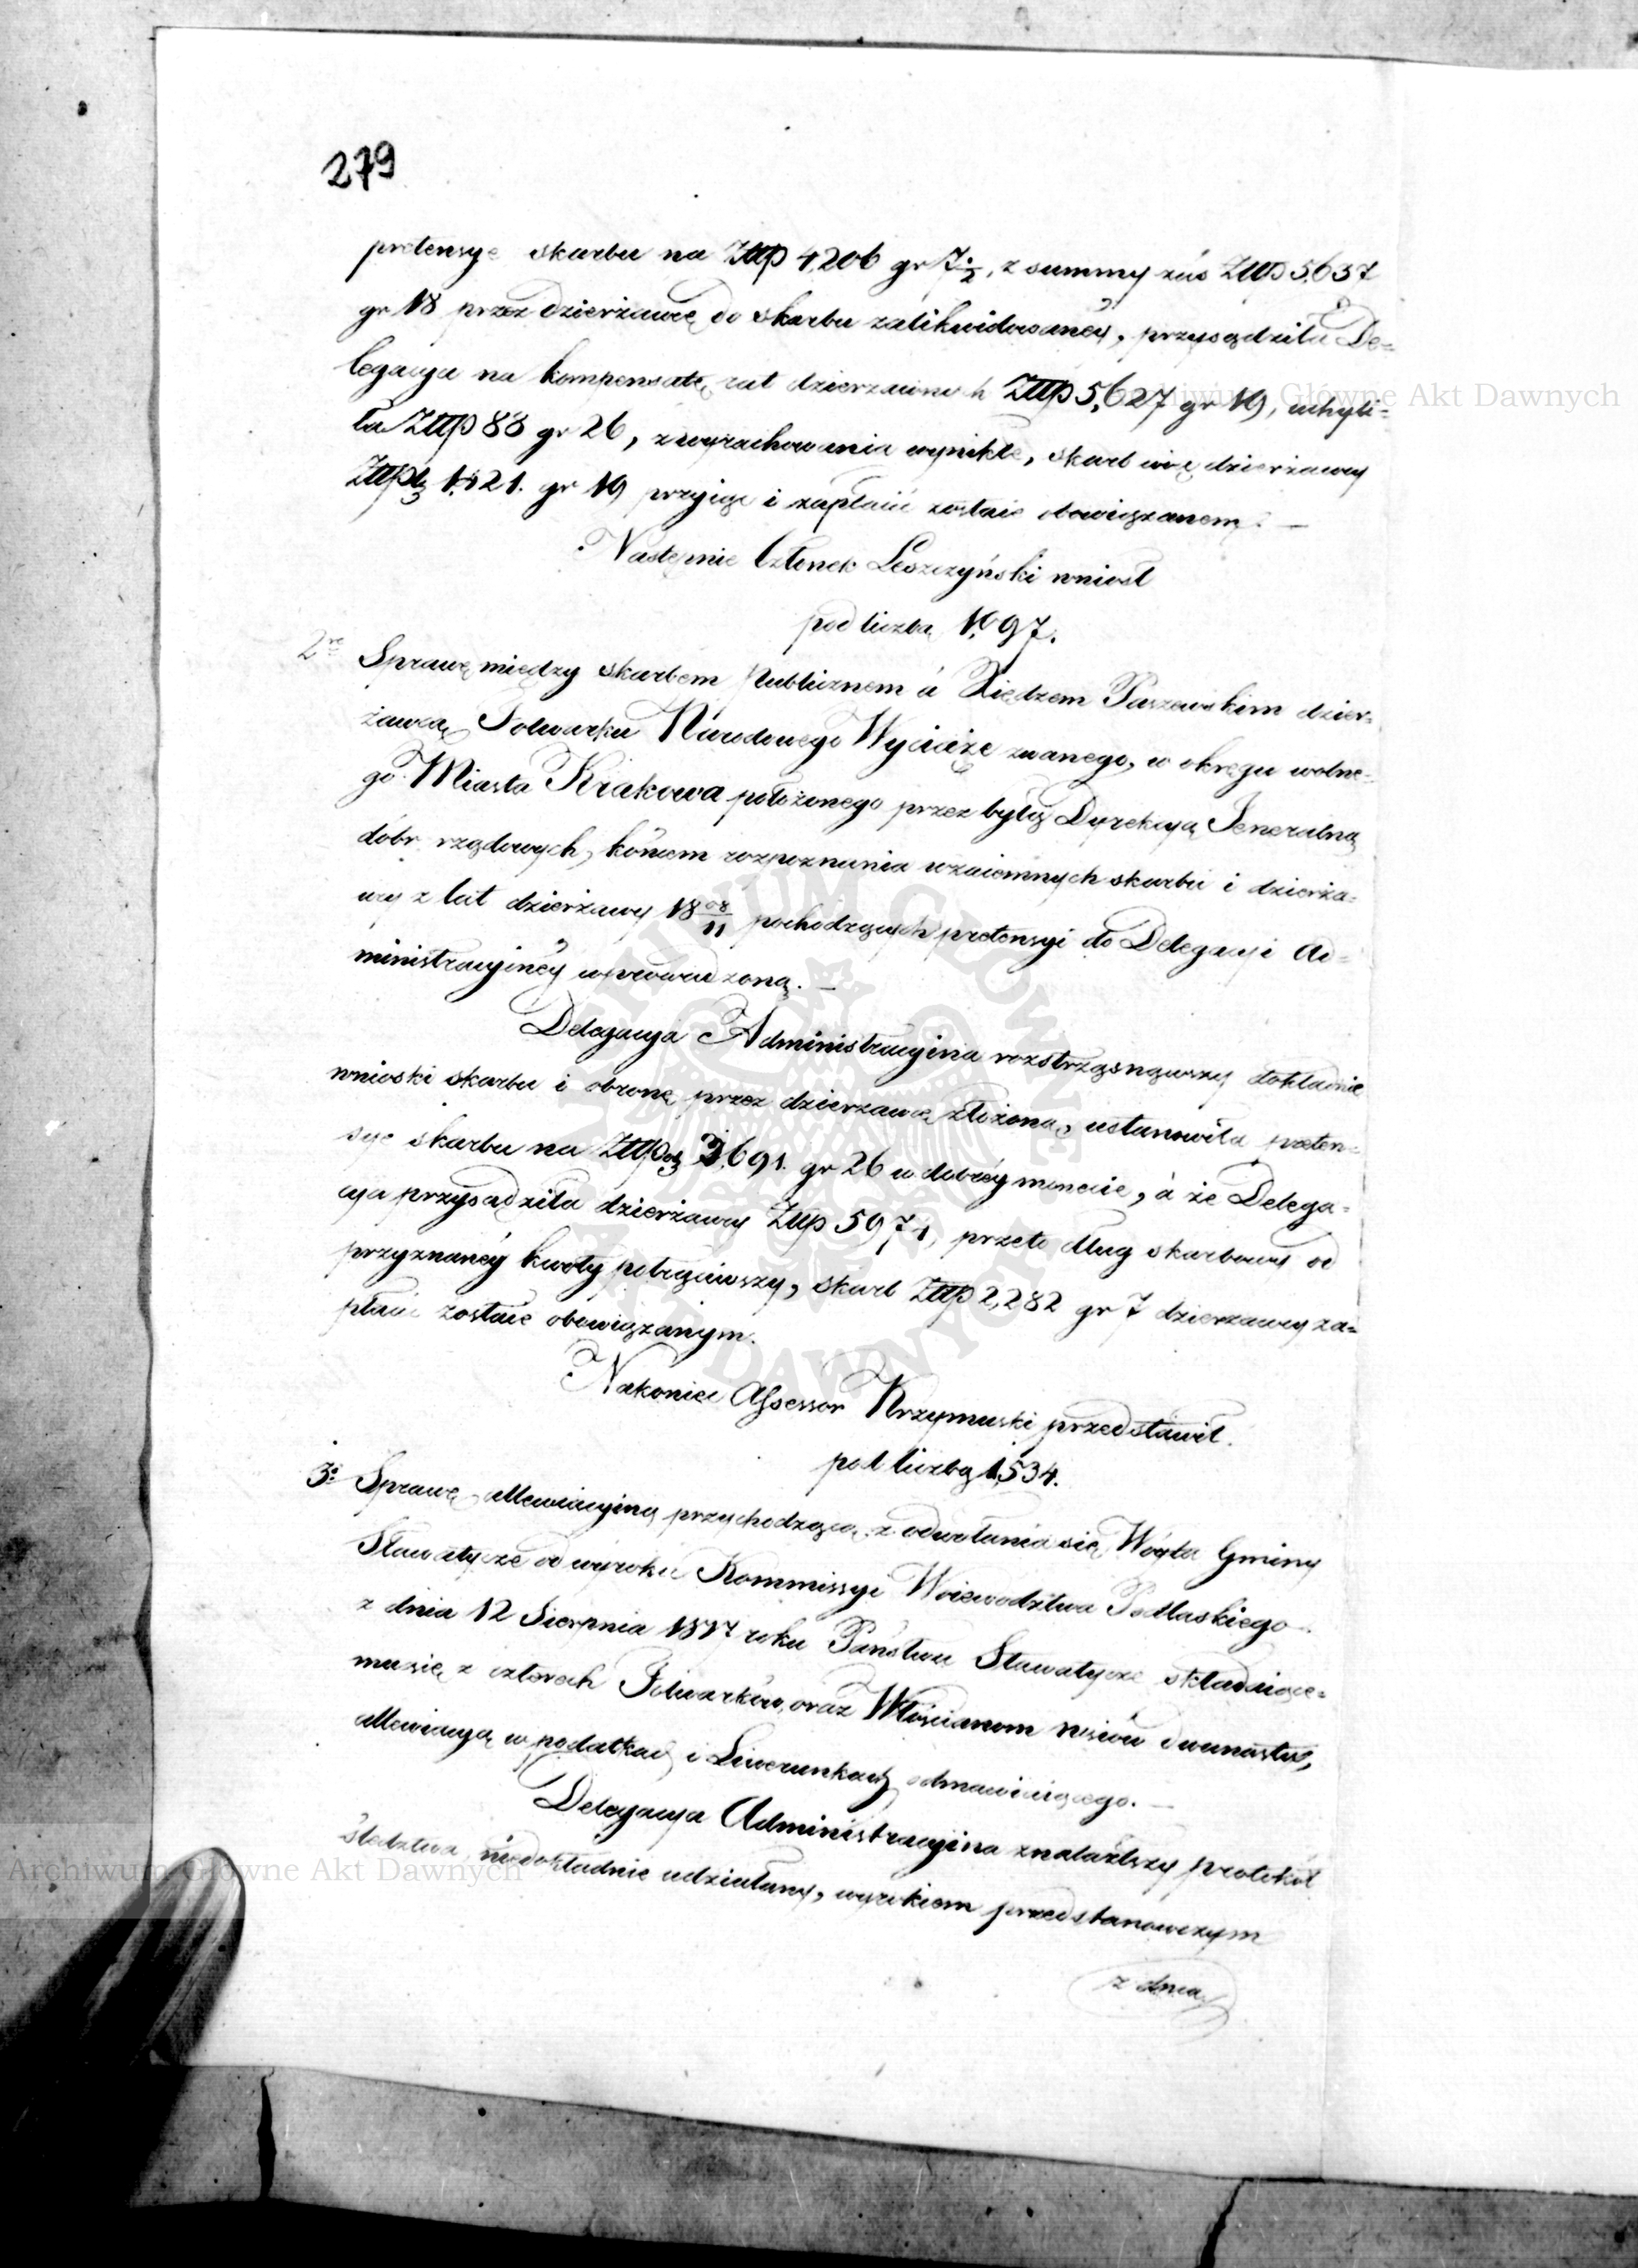 279
pretensye skarbu na Złłp 4,206 gr 7 1/2, z summy zaś Złłp 5,637
gr 18 przez dzierżawcę do skarbu zalikwidowanéy, przysądziła De=
legacya na kompensatę rat dzierżawnych Złłp 5,627 gr 19, uchyli=
ła Złłp 83 gr 26, z wyrachowania wynikłe, skarb więc dzierżawcy
1,421. gr 19 przyiąć i zapłacić zostaie obowiązanem. —
Następnie Członek Leszczyński wniosł
pod liczbą 1,097.
2re Sprawę między skarbem Publicznem á Xiędzem Paszewskim dzier=
żawcą Folwarku Narodowego Wyciąże zwanego, w okręgu wolne=
go Miasta Krakowa położonego przez byłą Dyrekcyą Jeneralną
dóbr rządowych, końcem rozpoznania wzaiemnych skarbu i dzierża=
wcy z lat dzierżawy 18 08/11 pochodzących pretensyi do Delegacyi Ad=
ministracyinéy wprowadzoną. —
Delegacya Administracyina rozstrząsnąwszy dokładnie
wnioski skarbu i obronę przez dzierzawcę złożoną, ustanowiła preten=
sye skarbu na 3,691. gr 26 w dobréy monecie, á że Delega=
cya przysądziła dzierżawcy Złłp 5974, przeto dług skarbowy od
przyznanéy kwoty potrąciwszy, skarb Złłp 2,282 gr 7 dzierzawcy za=
płacić zostaie obowiązanym.
Nakoniec Assessor Krzymuski przedstawił.
pod liczbą 1,534.
3e Sprawę allewiacyiną przychodzącą z odwołania się Wóyta Gminy
Sławatycze od wyroku Kommissyi Woiewodztwa Podlaskiego
z dnia 12 Sierpnia 1817 roku Państwu Sławatycze składaiące=
mu się z czterech Folwarków, oraz Włościanom wsiów dwunastu,
allewiacyą w podatkach i Liwerunkach odmawiaiącego. —
Delegacya Administracyina znalazłszy protokół
śledztwa, niedokładnie udziałany, wyrokiem przedstanowczym
z dnia
Archiwum Główne Akt Dawnych
Archiwum Główne Akt Dawnych
ARCHIWUM GŁÓWNE AKT DAWNYCH